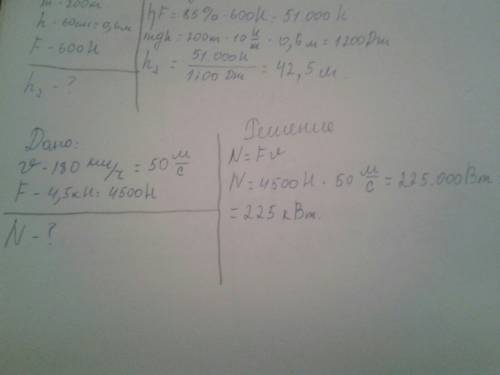 m - 200кг
h - 60см = 0,6м
F - 600Н
h₂ - ?
hF = 85% · 600Н = 51.000Н
mgh = 200кг · 10 Н/кг · 0,6м = 1200Дж
h₂ = 51.000Н / 1200Дж = 42,5м.
Дано:
v - 180 км/ч = 50 м/с
F - 4,5кН = 4500Н
N - ?
Решение
N = Fv
N = 4500Н · 50 м/с = 225.000Вт =
= 225 кВт.